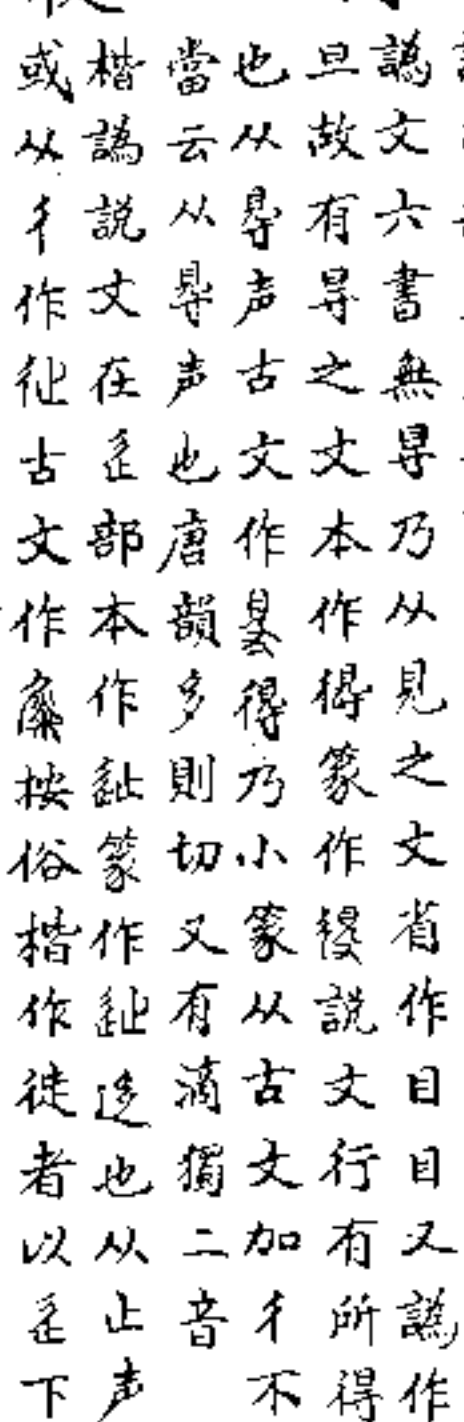 譌文六書無㝵乃从見之文省作目目又譌作
旦故有㝵之文本作得篆作說文行有所得
也从㝵声古文作得乃小篆从古文加彳不
當云从㝵声也唐韻多則切又有滴獨二音
楷譌説文在辵部本作篆作迻也从止声
或从彳作古文作按俗楷作徙者以辵下